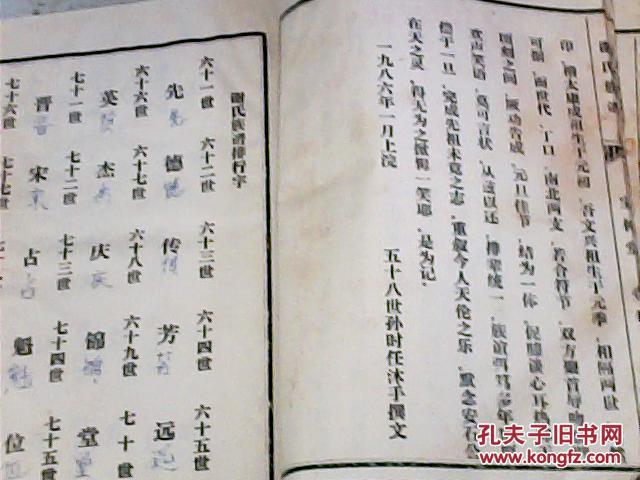 谢氏族谱
印．增太康戌祖生于元初．吾文兴祖生于元季．相隔两世
可假．而世代．丁口．南北两支．若合符节．双方顿首导吻
顷刻之间．厥功告成．元旦佳节．结为一体．促膝谈心耳热
欢声笑语．莫可言状．从这以还．排辈统一．族谊
偿于一旦．完成先祖未竟之志．重叙今人天伦之乐．默念安石公
在天之灵．得无为之掀髯一笑耶．是为记．
一九八六年一月上浣
五十八世孙时任沐手撰文
谢氏族谱排行字
六十一世 六十二世 六十三世 六十四世 六十五世
先 德 传 芳 远
六十六世 六十七世 六十八世 六十九世 七十世
英 杰 庆 锦 堂
七十一世 七十二世 七十三世 七十四世 七十五世
晋 宋 占 魁 位
七十六世 七十七世
孔夫子旧书网
www.kongfz.com